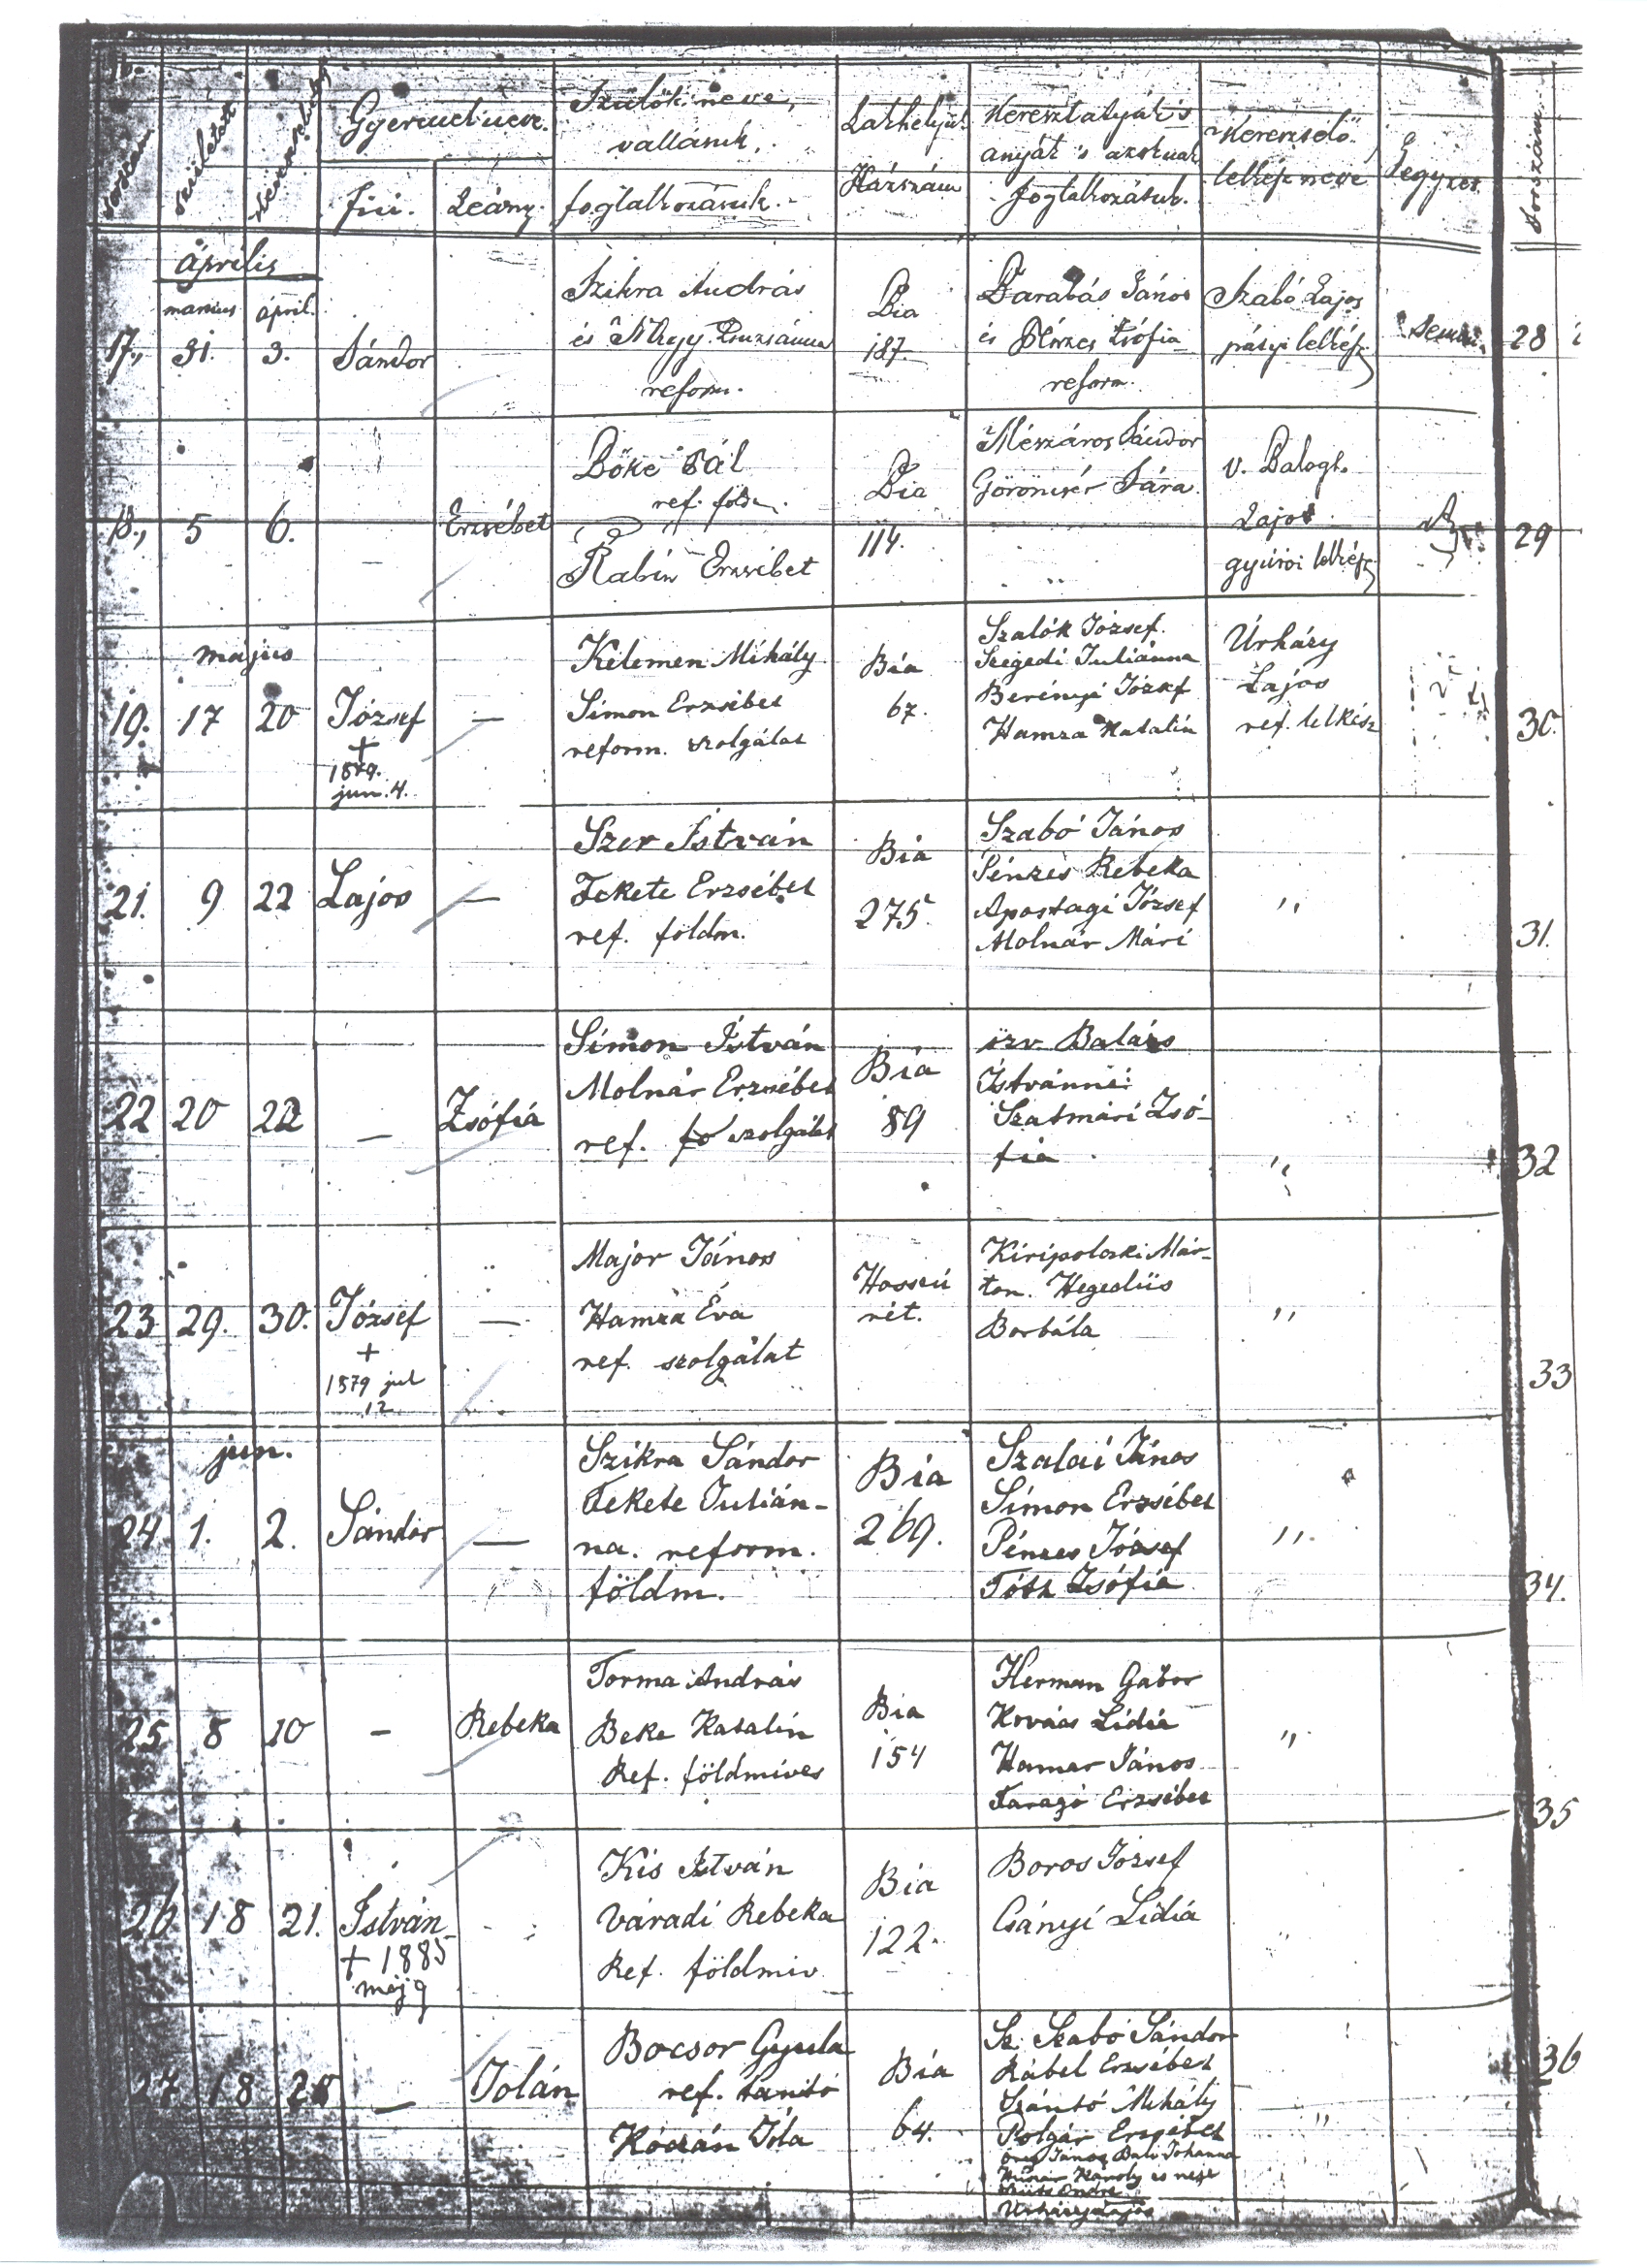 Sorszám
Született
Gyermek neve.
Fiú.
Leány.
Szülők neve,
vallásuk,
foglalkozásuk.
Lakhelyük
Házszám
Keresztatyák 's
anyák 's azoknak
foglalkozásuk.
Keresztelő
lelkész neve
Jegyzet
Sorszám
április
martius
april.
17.,
31.
3.
Sándor
Szikra András
és Nagy Zsuzsánna
reform.
Bia
187.
Darabás János
és Pénzes Zsófia
reform.
Szabó Lajos
pátyi lelkész
28
18.,
5
6.
Erzsébet
Bőke Pál
ref. földm.
Rabin Erzsébet
Bia
114.
Mészáros Sándor
Göröncsér Sára
v. Balogh
Lajos
gyúrói lelkész
29
május
19.
17
20
József
+
1879.
jun. 4.
—
Kelemen Mihály
Simon Erzsébet
reform. szolgálat
Bia
67.
Szalók József.
Szegedi Juliánna
Berényi József
Hamza Katalin
Úrházy
Lajos
ref. lelkész
30.
21.
9
22
Lajos
—
Szer István
Fekete Erzsébet
ref. földm.
Bia
275.
Szabó János
Pénzes Rebeka
Apostagi József
Molnár Mári
"
31.
22
20
22
—
Zsófia
Simon István
Molnár Erzsébet
ref. fö szolgálat
Bia
89
özv. Balázs
Istvánné
Szatmári Zsó-
fia
"
32
23
29.
30.
József
+
1879 jul
12
—
Major János
Hamza Éva
ref. szolgálat
Hosszú
rét.
Kiripolszki Már-
ton. Hegedüs
Borbála
"
33
jun.
24.
1.
2.
Sándor
—
Szikra Sándor
Fekete Julián-
na. reform.
földm.
Bia
269.
Szalai János
Simon Erzsébet
Pénzes József
Tóth Zsófia
"
34.
25
8
10
—
Rebeka
Torma András
Beke Katalin
Ref. földmives
Bia
154
Herman Gábor
Kovács Lidia
Hamar János
Faragó Erzsébet
"
35
26
18
21.
István
+ 1885
máj 9
Kis István
Váradi Rebeka
Ref. földmiv
Bia
122.
Boros József
Csányi Lidia
"
27
18
28
—
Jolán
Bocsor Gyula
ref. tanító
Kóczán Jóla
Bia
64.
Sz. Szabó Sándor
Rábel Erzsébet
Szántó Mihály
Polgár Erzsébet
öreg János Bali Johanna
Huszár Károly és neje
Úrházy Lajos
"
36